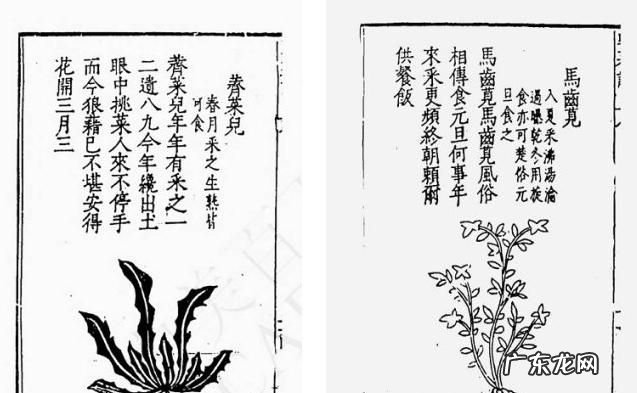 馬齒莧
入夏采沸湯瀹
過曝乾冬用旋
食亦可楚俗元
旦食之
馬齒莧馬齒莧風俗
相傳食元旦何事年
來采更頻終朝賴爾
供餐飯
薺菜兒
春月采之生熟皆
可食
薺菜兒年年有采之一
二遺八九今年纔出土
眼中挑菜人來不停手
而今狼藉已不堪安得
花開三月三
广东龙网